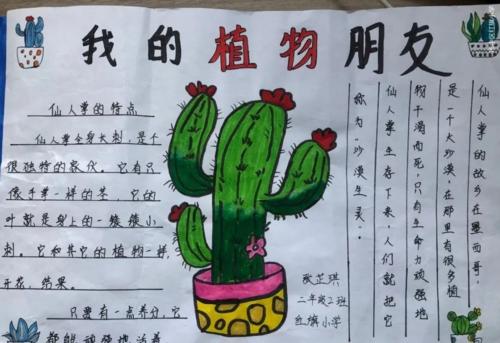 我的植物朋友
仙人掌的特点
仙人掌全身长刺,是个
很独特的家伙。它有只
像手掌一样的茎,它的
叶就是身上的一簇簇小
刺。它和其它的植物一样,
开花、结果。
只要有一点养分,它
都能顽强地活着
仙人掌的故乡在墨西哥,
是一个大沙漠,在那里有很多植
物干渴而死,只有生命力顽强地
仙人掌生存下来,人们就把它
称为“沙漠生灵”。
二年级2班
红旗小学